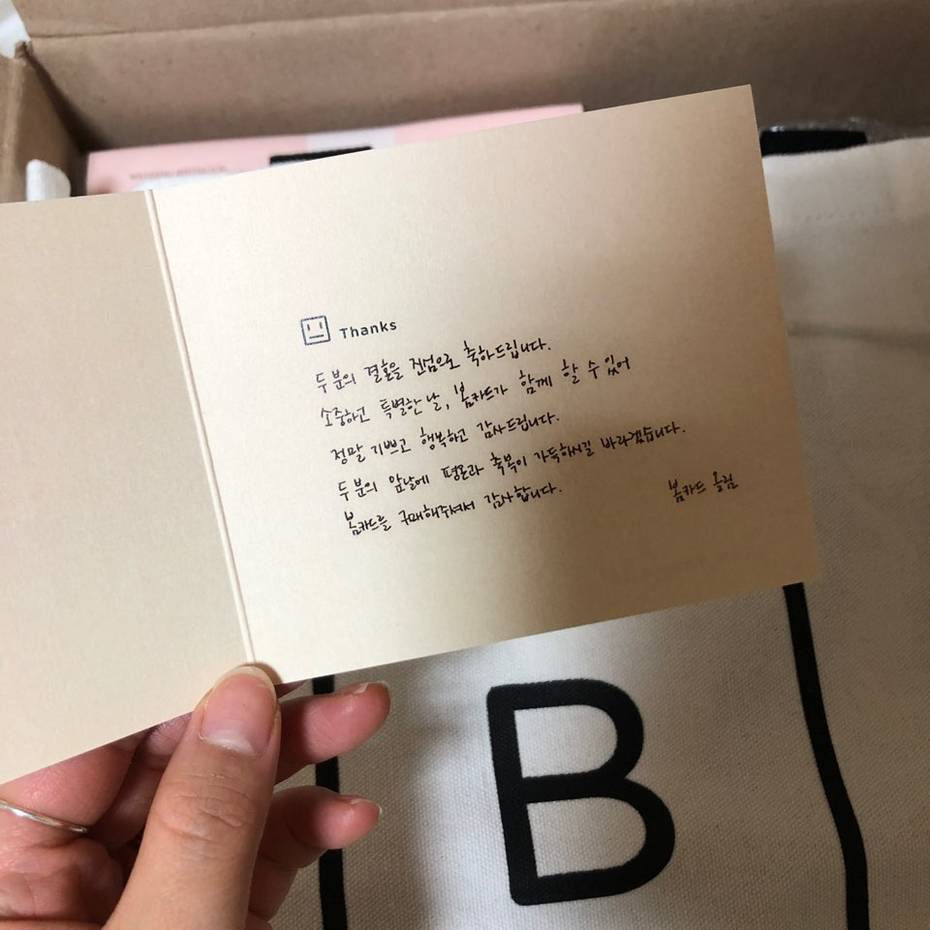 Thanks
두분의 결혼을 진심으로 축하드립니다.
소중하고 특별한 날, 봄카드가 함께 할 수 있어
정말 기쁘고 행복하고 감사드립니다.
두분의 앞날에 평온과 축복이 가득하시길 바라겠습니다.
봄카드를 구매해주셔서 감사합니다.
봄카드 올림
B